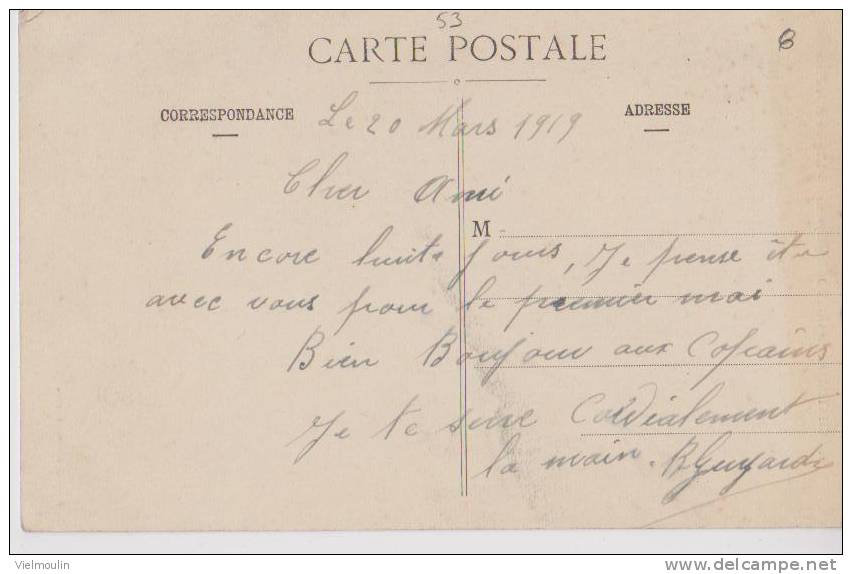 53
6
CARTE POSTALE
CORRESPONDANCE
ADRESSE
Le 20 Mars 1919
Cher Ami
M
Encore huit Jours, Je pense êtr
avec vous pour le premier mai
Bien Bonjour aux Copains
Je te serre Cordialement
la main. BGuyard
Vielmoulin
www.delcampe.net